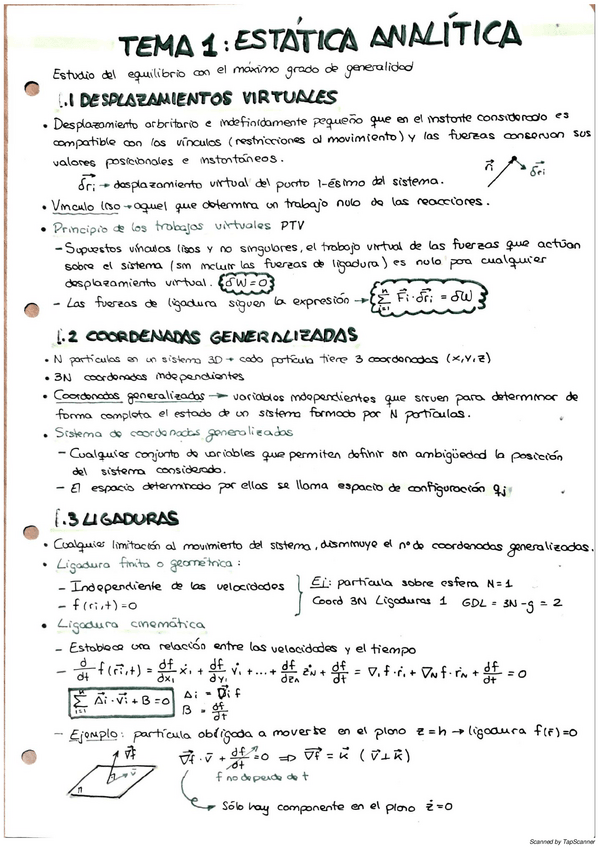 TEMA 1: ESTÁTICA ANALÍTICA
Estudio del equilibrio con el máximo grado de generalidad
1.1 DESPLAZAMIENTOS VIRTUALES
• Desplazamiento arbitrario e indefinidamente pequeño que en el instante considerado es
compatible con los vínculos (restricciones al movimiento) y las fuerzas conservan sus
valores posicionales e instantáneos.
δr⃗i → desplazamiento virtual del punto i-ésimo del sistema.
r⃗i δr⃗i
• Vínculo liso → aquel que determina un trabajo nulo de las reacciones.
• Principio de los trabajos virtuales PTV
- Supuestos vínculos lisos y no singulares, el trabajo virtual de las fuerzas que actúan
sobre el sistema (sin incluir las fuerzas de ligadura) es nulo para cualquier
desplazamiento virtual. {δW = 0}
- Las fuerzas de ligadura siguen la expresión → Σ F⃗i · δr⃗i = δW
1.2 COORDENADAS GENERALIZADAS
• N partículas en un sistema 3D → cada partícula tiene 3 coordenadas (x, y, z)
• 3N coordenadas independientes
• Coordenadas generalizadas → variables independientes que sirven para determinar de
forma completa el estado de un sistema formado por N partículas.
• Sistema de coordenadas generalizadas
- Cualquier conjunto de variables que permiten definir sin ambigüedad la posición
del sistema considerado.
- El espacio determinado por ellas se llama espacio de configuración qj
1.3 LIGADURAS
• Cualquier limitación al movimiento del sistema, disminuye el nº de coordenadas generalizadas.
• Ligadura finita o geométrica:
- Independiente de las velocidades
- f(ri,t) = 0
Ej: partícula sobre esfera N=1
Coord 3N Ligaduras 1 GDL = 3N - g = 2
• Ligadura cinemática
- Establece una relación entre las velocidades y el tiempo
- d/dt f(r⃗i,t) = df/dx₁ ẋ₁ + df/dy₁ ẏ₁ + ... + df/dzN żN + df/dt = ∇₁f · ṙ₁ + ∇N f · ṙN + df/dt = 0
Σ A⃗i · v⃗i + B = 0
A⃗i = ∇⃗i f
B = df/dt
- Ejemplo: partícula obligada a moverse en el plano z = h → ligadura f(r⃗) = 0
∇⃗f v⃗ π
∇⃗f · v⃗ + df/dt = 0 ⇒ ∇⃗f = k⃗ (v⃗ ⊥ k⃗)
f no depende de t
Sólo hay componente en el plano ż = 0
Scanned by TapScanner